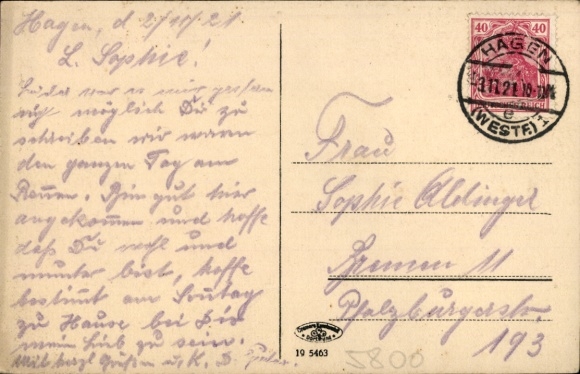 Hagen, d 2/11/21
L. Sophie!
Leider war es mir gestern
nicht möglich Dir zu
schreiben wir waren
den ganzen Tag am
Rennen. Bin gut hier
angekommen und hoffe
daß Du wohl und
munter bist, hoffe
bestimt am Sontag
zu Hause bei Dir
mein Lieb zu sein.
Mit herzl Grüßen u. K. D.
40 40
HAGEN
3.11.21
e
(WESTF) 1
Frau
Sophie Aldinger
Bremen 11
Pfalzburgerstr.
193
19 5463
5800